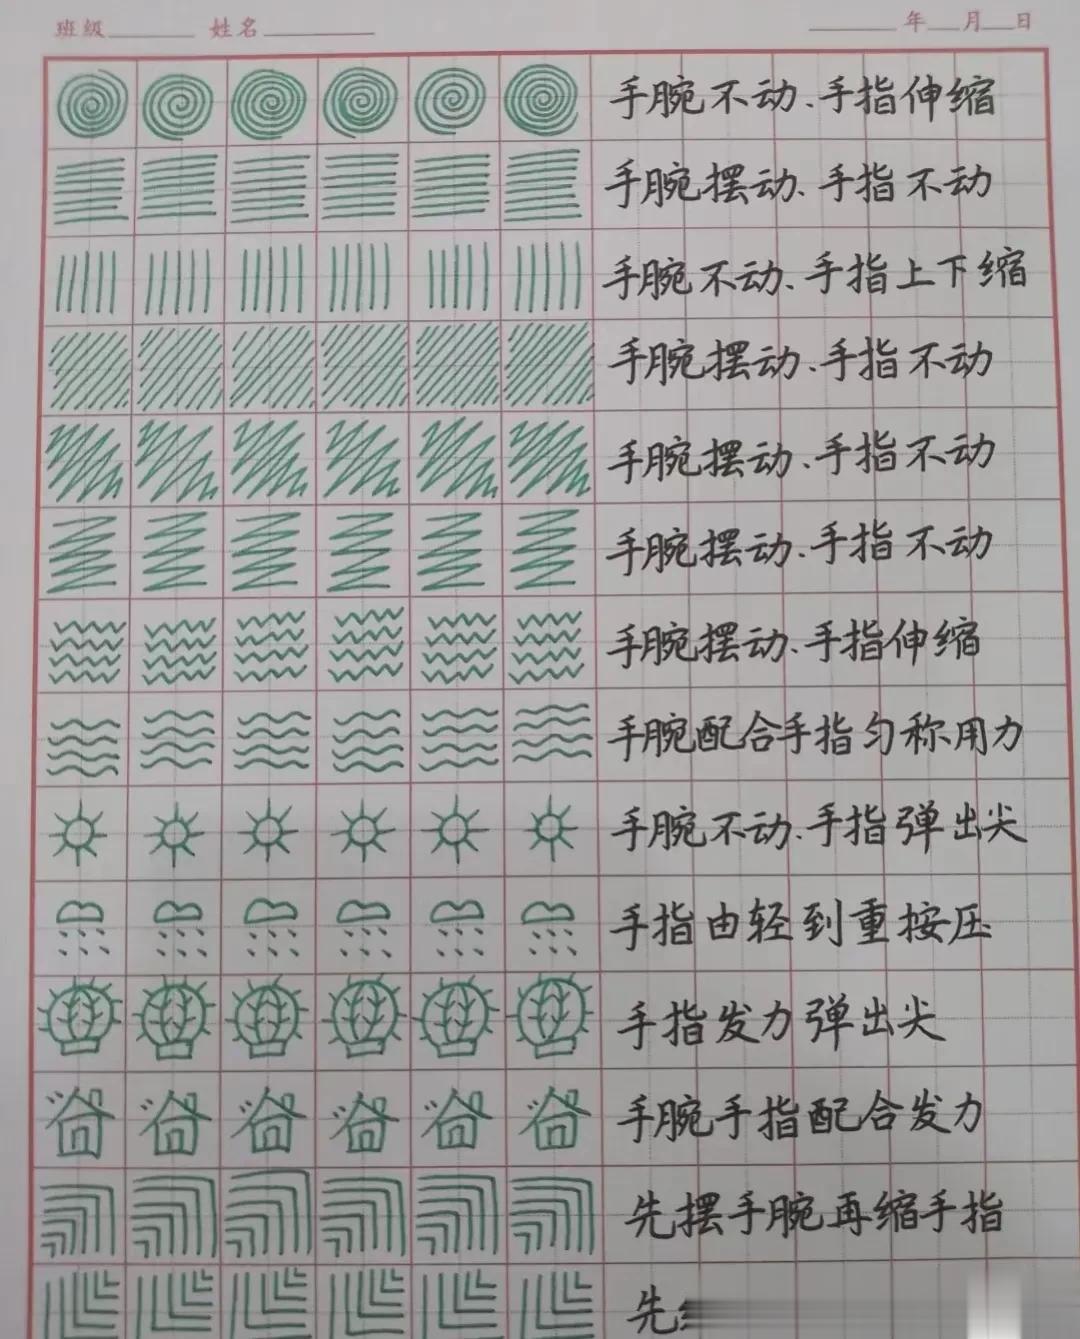 班级 姓名 年 月 日
手腕不动、手指伸缩
手腕摆动、手指不动
手腕不动、手指上下缩
手腕摆动、手指不动
手腕摆动、手指不动
手腕摆动、手指不动
手腕摆动、手指伸缩
手腕配合手指匀称用力
手腕不动、手指弹出尖
手指由轻到重按压
手指发力弹出尖
手腕手指配合发力
先摆手腕再缩手指
先